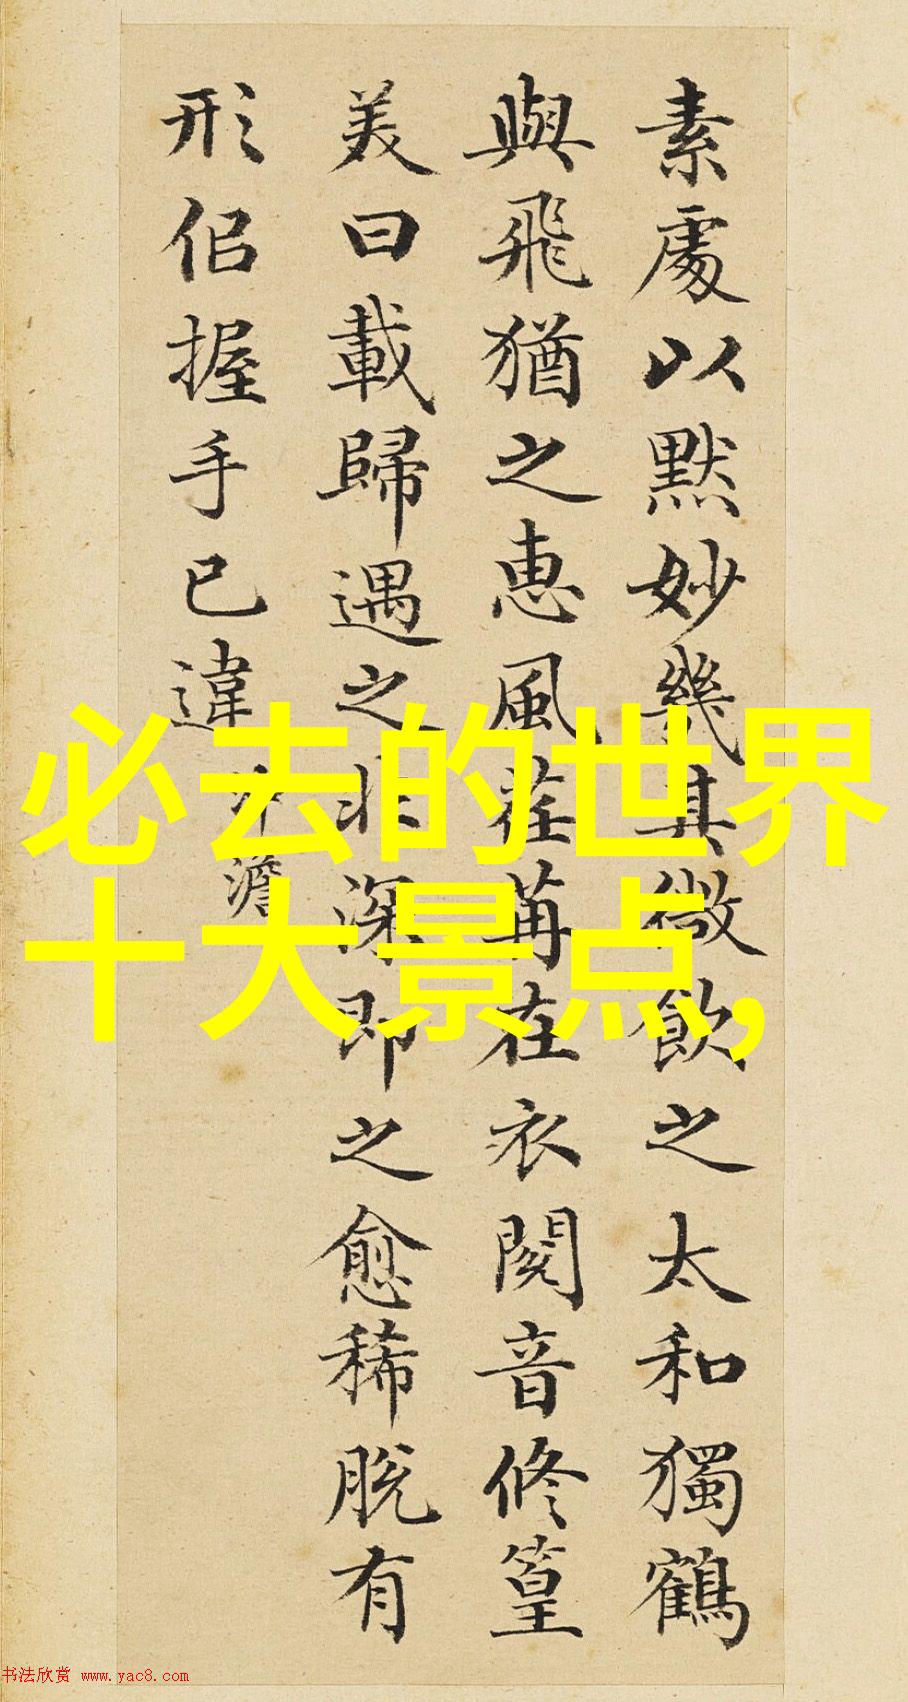 素處以默妙幾其微飲之太和獨鶴
與飛猶之惠風荏苒在衣閱音修篁
美曰載歸遇之非深即之愈稀脫有
形佀握手已違 沖澹
必去的世界
十大景点,
书法欣赏 www.yac8.com